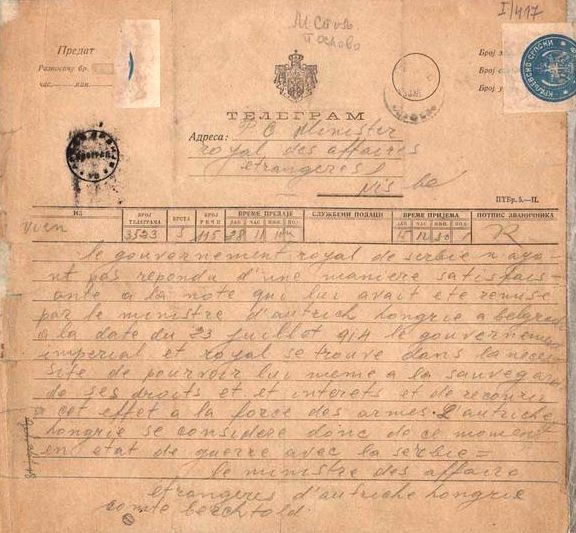 I/417
Предат
Разносачу бр.
час.— мин.
Број
Број
Број
ТЕЛЕГРАМ
Адреса: Minister
royal des affaires
etrangeres
Nis
ПТБр. 5.—П.
ИЗ БРОЈ ТЕЛЕГРАМА ВРСТА БРОЈ РЕЧИ ВРЕМЕ ПРЕДАЈЕ СЛУЖБЕНИ ПОДАЦИ ВРЕМЕ ПРИЈЕМА ПОТПИС ЗВАНИЧНИКА
ДАН ЧАС МИН ДАН ЧАС МИН
Vien 3523 5 115 28 11 12 30
le gouvernement royal de serbie n aya
nt pas repondu d'une maniere satisfais-
ante a la note qui lui avait ete remise
par le ministre d'autrich hongrie a belgrade
a la date du 23 juillot 914 le gouvernement
imperial et royal se trouve dans la neces
site de pourvoir lui meme a la sauvegar
de ses droits et et interets et de recourir
a cet effet a la force des armes. L'autriche
hongrie se considere donc de ce moment
en etat de guerre avec la serbie =
le ministre des affaire
etrangeres d'autriche hongrie
comte berchtold.